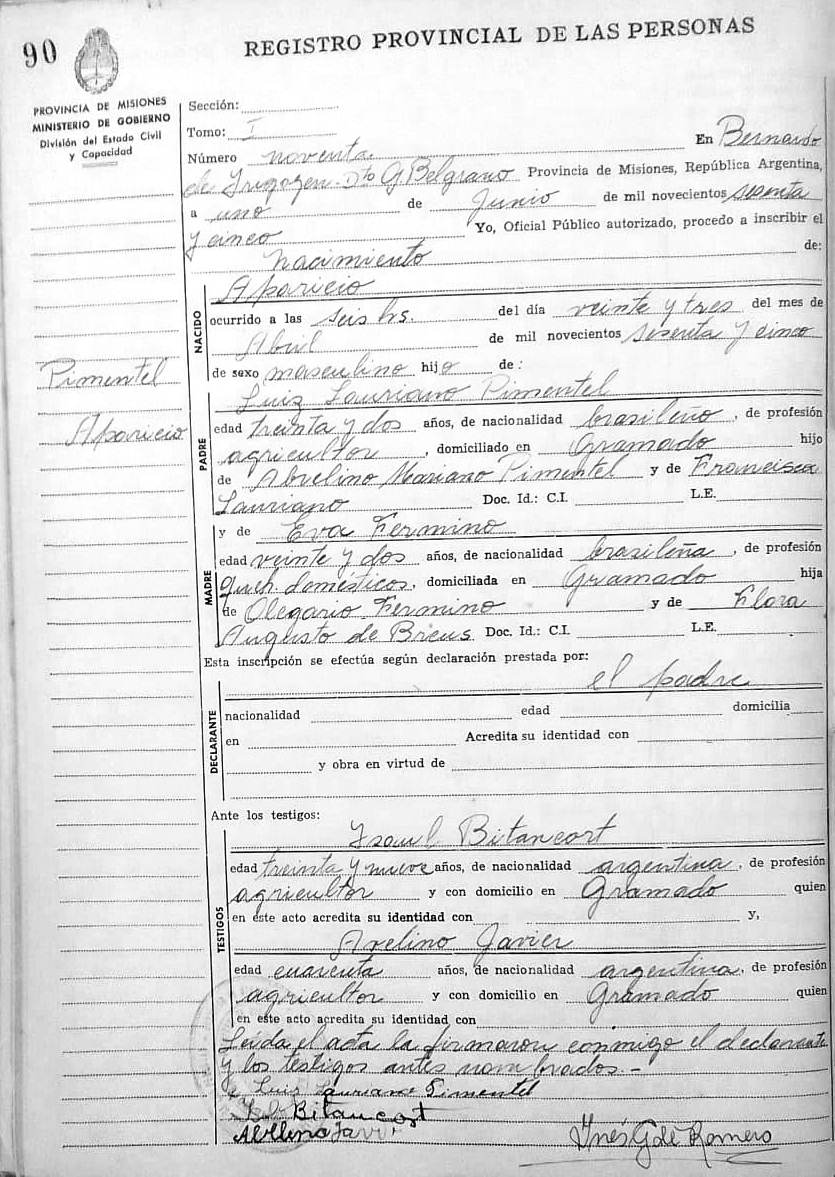 90
REGISTRO PROVINCIAL DE LAS PERSONAS
PROVINCIA DE MISIONES
MINISTERIO DE GOBIERNO
División del Estado Civil
y Capacidad
Sección:
Tomo: I
Número noventa En Bernardo
de Irigoyen - Dto G Belgrano Provincia de Misiones, República Argentina,
a uno de Junio de mil novecientos sesenta
y cinco Yo, Oficial Público autorizado, procedo a inscribir el
nacimiento de:
NACIDO
Aparicio
ocurrido a las seis hs. del día veinte y tres del mes de
Abril de mil novecientos sesenta y cinco
de sexo masculino hijo de:
Pimentel
Aparicio
PADRE
Luiz Lauriano Pimentel
edad treinta y dos años, de nacionalidad brasileño, de profesión
agricultor, domiciliado en Gramado hijo
de Abvelino Mariano Pimentel y de Francisca
Lauriano Doc. Id.: C.I. L.E.
MADRE
y de Eva Fermino
edad veinte y dos años, de nacionalidad brasileña, de profesión
queh. domésticos, domiciliada en Gramado hija
de Olegario Fermino y de Flora
Augusto de Breus Doc. Id.: C.I. L.E.
Esta inscripción se efectúa según declaración prestada por:
el padre
DECLARANTE
nacionalidad edad domicilia
en Acredita su identidad con
y obra en virtud de
Ante los testigos:
TESTIGOS
Bitancort
edad treinta y nueve años, de nacionalidad argentina, de profesión
agricultor y con domicilio en Gramado quien
en este acto acredita su identidad con y,
Avelino Javier
edad cuarenta años, de nacionalidad argentina, de profesión
agricultor y con domicilio en Gramado quien
en este acto acredita su identidad con
Leída el acta la firmaron conmigo el declarante
y los testigos antes nombrados. -
Luiz Lauriano Pimentel
Bitancort
Inés G de Romero